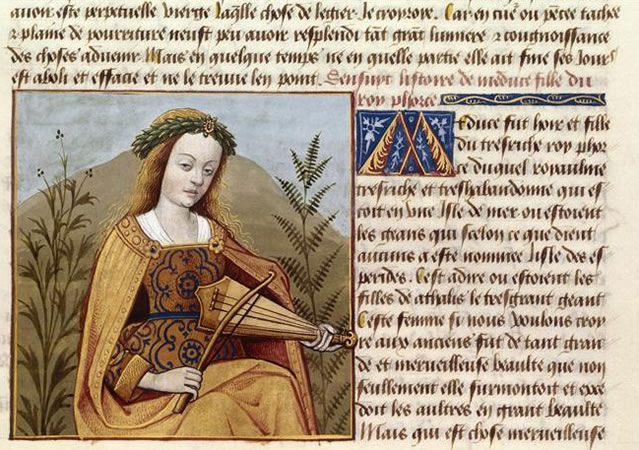 auoir este perpetuelle vierge laq̃lle chose de legier ie croyroye. Car en tue ou pẽcee tachee
⁊ plaine de pourriture neust peu auoir resplendi tãt grãt lumiere ⁊ congnoissance
des choses aduenir. Mais en quelque temps ne en quelle partie elle ait fine ses iours
est aboli et efface et ne le treuue len point. Sensuyt listoire de meduce fille du
roy phorce
Meduce fut hoir et fille
du tresriche roy phor
ce duquel royaulme
tresriche et treshabandonne qui es
toit en vne isle de mer ou estoient
les geans qui scelon ce que dient
aucuns a este nommee lisle des es
perides. Cest adire ou estoient les
filles de athalis le tresgrant geant
Ceste femme si nous voulons croy
re aux anciens fut de tant gran
de et merueilleuse beaulte que non
seullement elle surmontoit et exce
doit les aultres en grant beaulte
Mais qui est chose merueilleuse